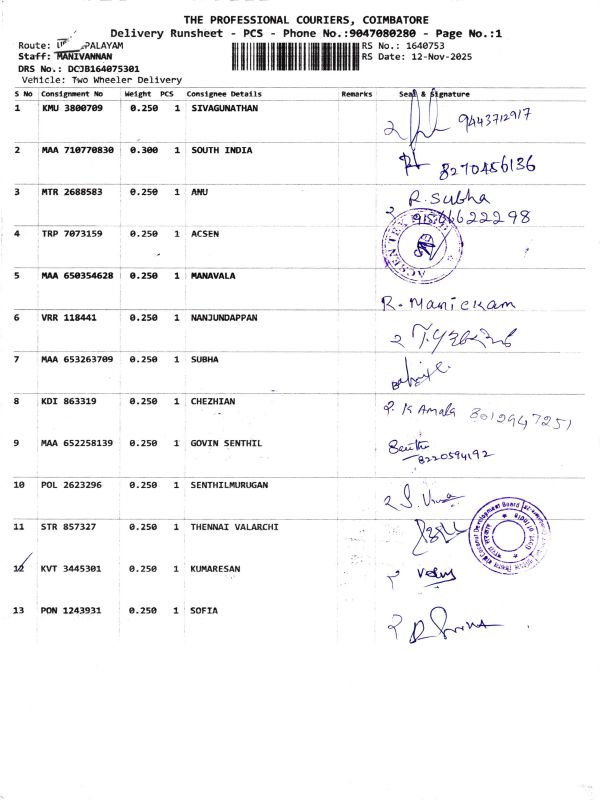 THE PROFESSIONAL COURIERS, COIMBATORE
Delivery Runsheet - PCS - Phone No.:9047080280 - Page No.:1
Route: PALAYAM
RS No.: 1640753
Staff: MANIVANNAN
RS Date: 12-Nov-2025
DRS No.: DCJB164075301
Vehicle: Two Wheeler Delivery
S No Consignment No Weight PCS Consignee Details Remarks Seal & Signature
1 KMU 3800709 0.250 1 SIVAGUNATHAN 9443712917
2 MAA 710770830 0.300 1 SOUTH INDIA 8270456136
3 MTR 2688583 0.250 1 ANU R. Subha
22298
4 TRP 7073159 0.250 1 ACSEN
5 MAA 650354628 0.250 1 MANAVALA R. Manickam
6 VRR 118441 0.250 1 NANJUNDAPPAN
7 MAA 653263709 0.250 1 SUBHA
8 KDI 863319 0.250 1 CHEZHIAN Amala 8012947251
9 MAA 652258139 0.250 1 GOVIN SENTHIL
8220594192
10 POL 2623296 0.250 1 SENTHILMURUGAN
11 STR 857327 0.250 1 THENNAI VALARCHI Development Board
12 KVT 3445301 0.250 1 KUMARESAN
13 PON 1243931 0.250 1 SOFIA